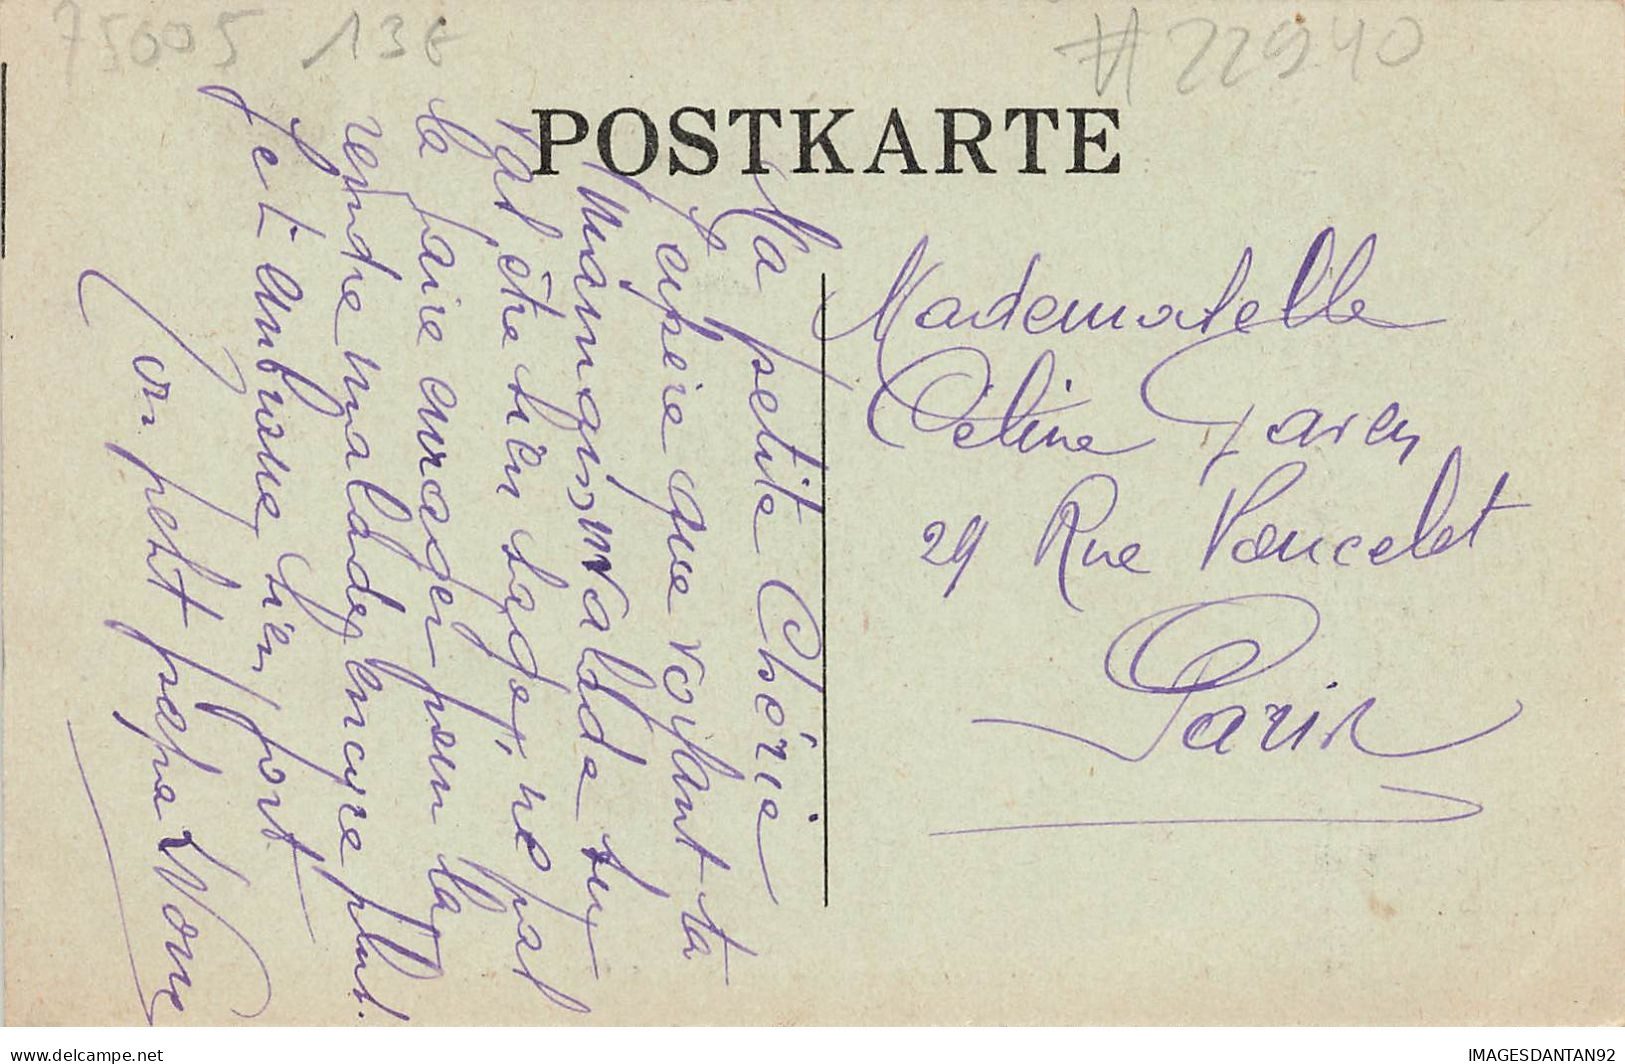 75005 13€
#22940
POSTKARTE
Ma petite Chérie
J'espère que voyant ta
maman malade tu
vas être bien sage, ne pas
la faire enrager pour la
rendre malade encore plus.
Je t'embrasse bien fort
Ton petit papa
Mademoiselle
Céline
29 Rue Poncelet
Paris
delcampe.net
IMAGESDANTAN92